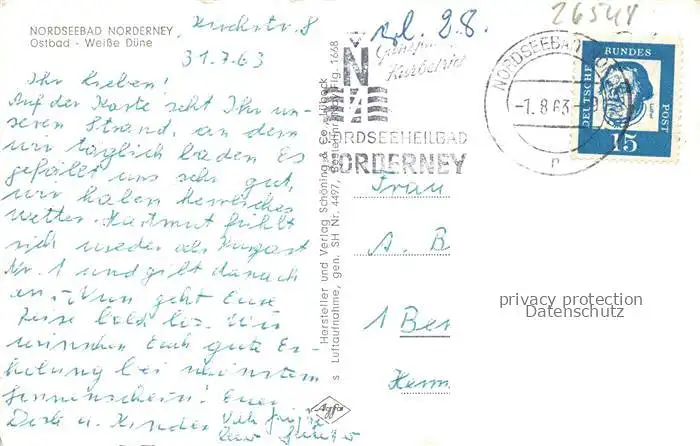 NORDSEEBAD NORDERNEY
Ostbad - Weiße Düne
31.7.63
Ihr Lieben!
Auf der Karte seht Ihr un-
seren Strand, an dem
wir täglich baden. Es
gefällt uns sehr gut,
wir haben herrliches
Wetter. Hartmut fühlt
sich wieder als Kurgast
Nr. 1 und gibt danach
an. Nun geht Eure
Reise bald los. Wir
wünschen Euch gute Er-
holung bei schönstem
Sonnenschein! Eure
Dirk u. Kinder
Hersteller und Verlag Schöning & Co., Lübeck
s Luftaufnahme, gen. SH Nr. 4497, Bestellnr. Fig. 1668
Agfa
26548
N
NORDSEEHEILBAD
NORDERNEY
NORDSEEBAD
-1.8.63
DEUTSCHE BUNDESPOST
15
Frau
A. B
1 Ber
privacy protection
Datenschutz